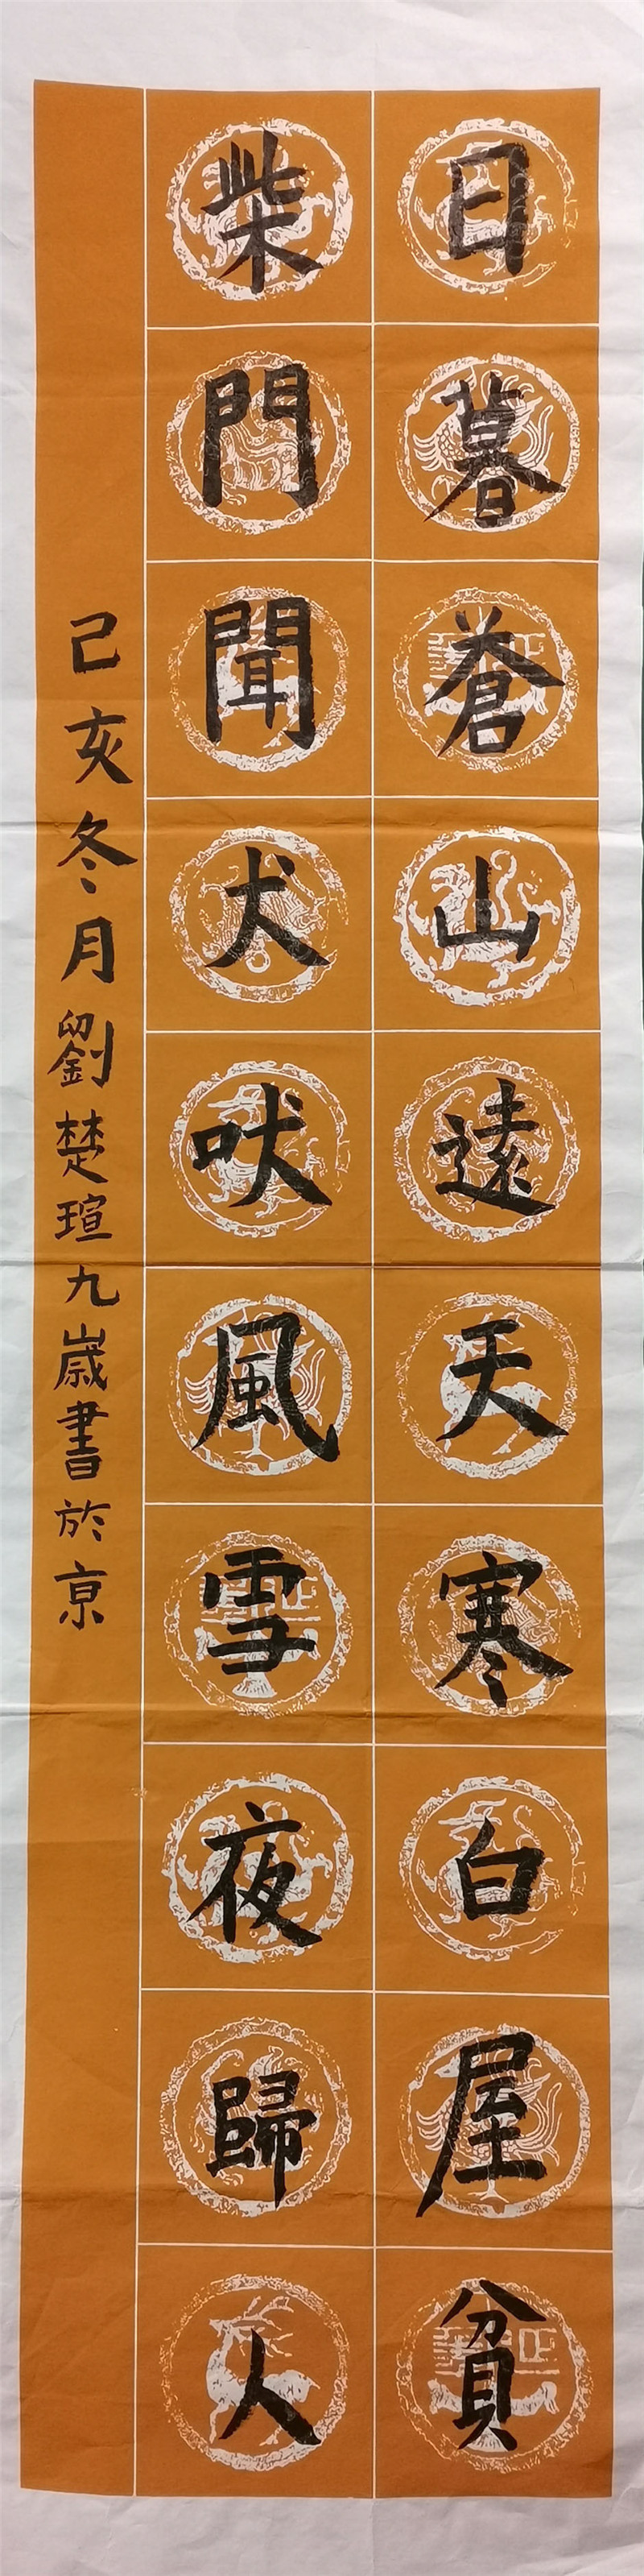 日暮蒼山遠天寒白屋貧
柴門聞犬吠風雪夜歸人
己亥冬月劉楚瑄九歲書於京